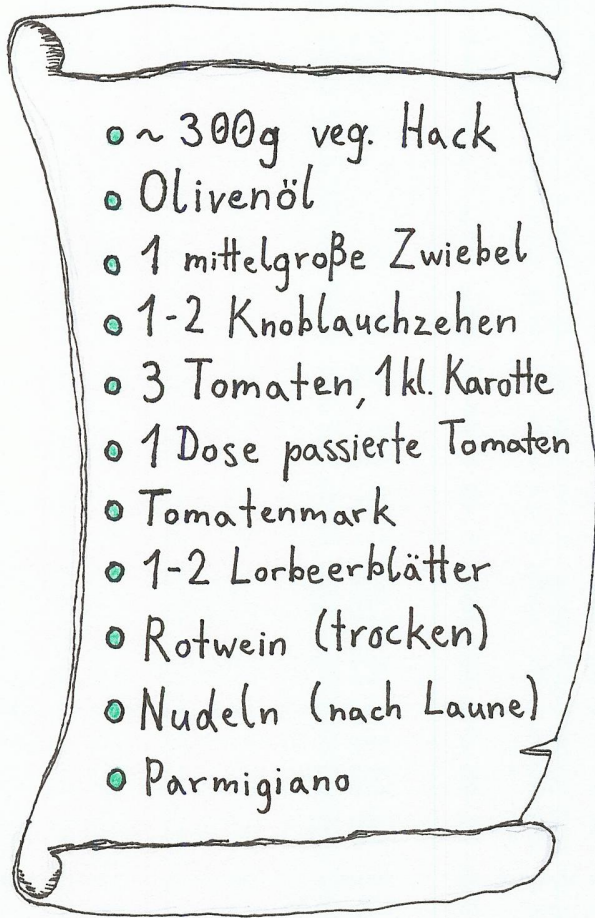 ~ 300g veg. Hack
Olivenöl
1 mittelgroße Zwiebel
1-2 Knoblauchzehen
3 Tomaten, 1 kl. Karotte
1 Dose passierte Tomaten
Tomatenmark
1-2 Lorbeerblätter
Rotwein (trocken)
Nudeln (nach Laune)
Parmigiano